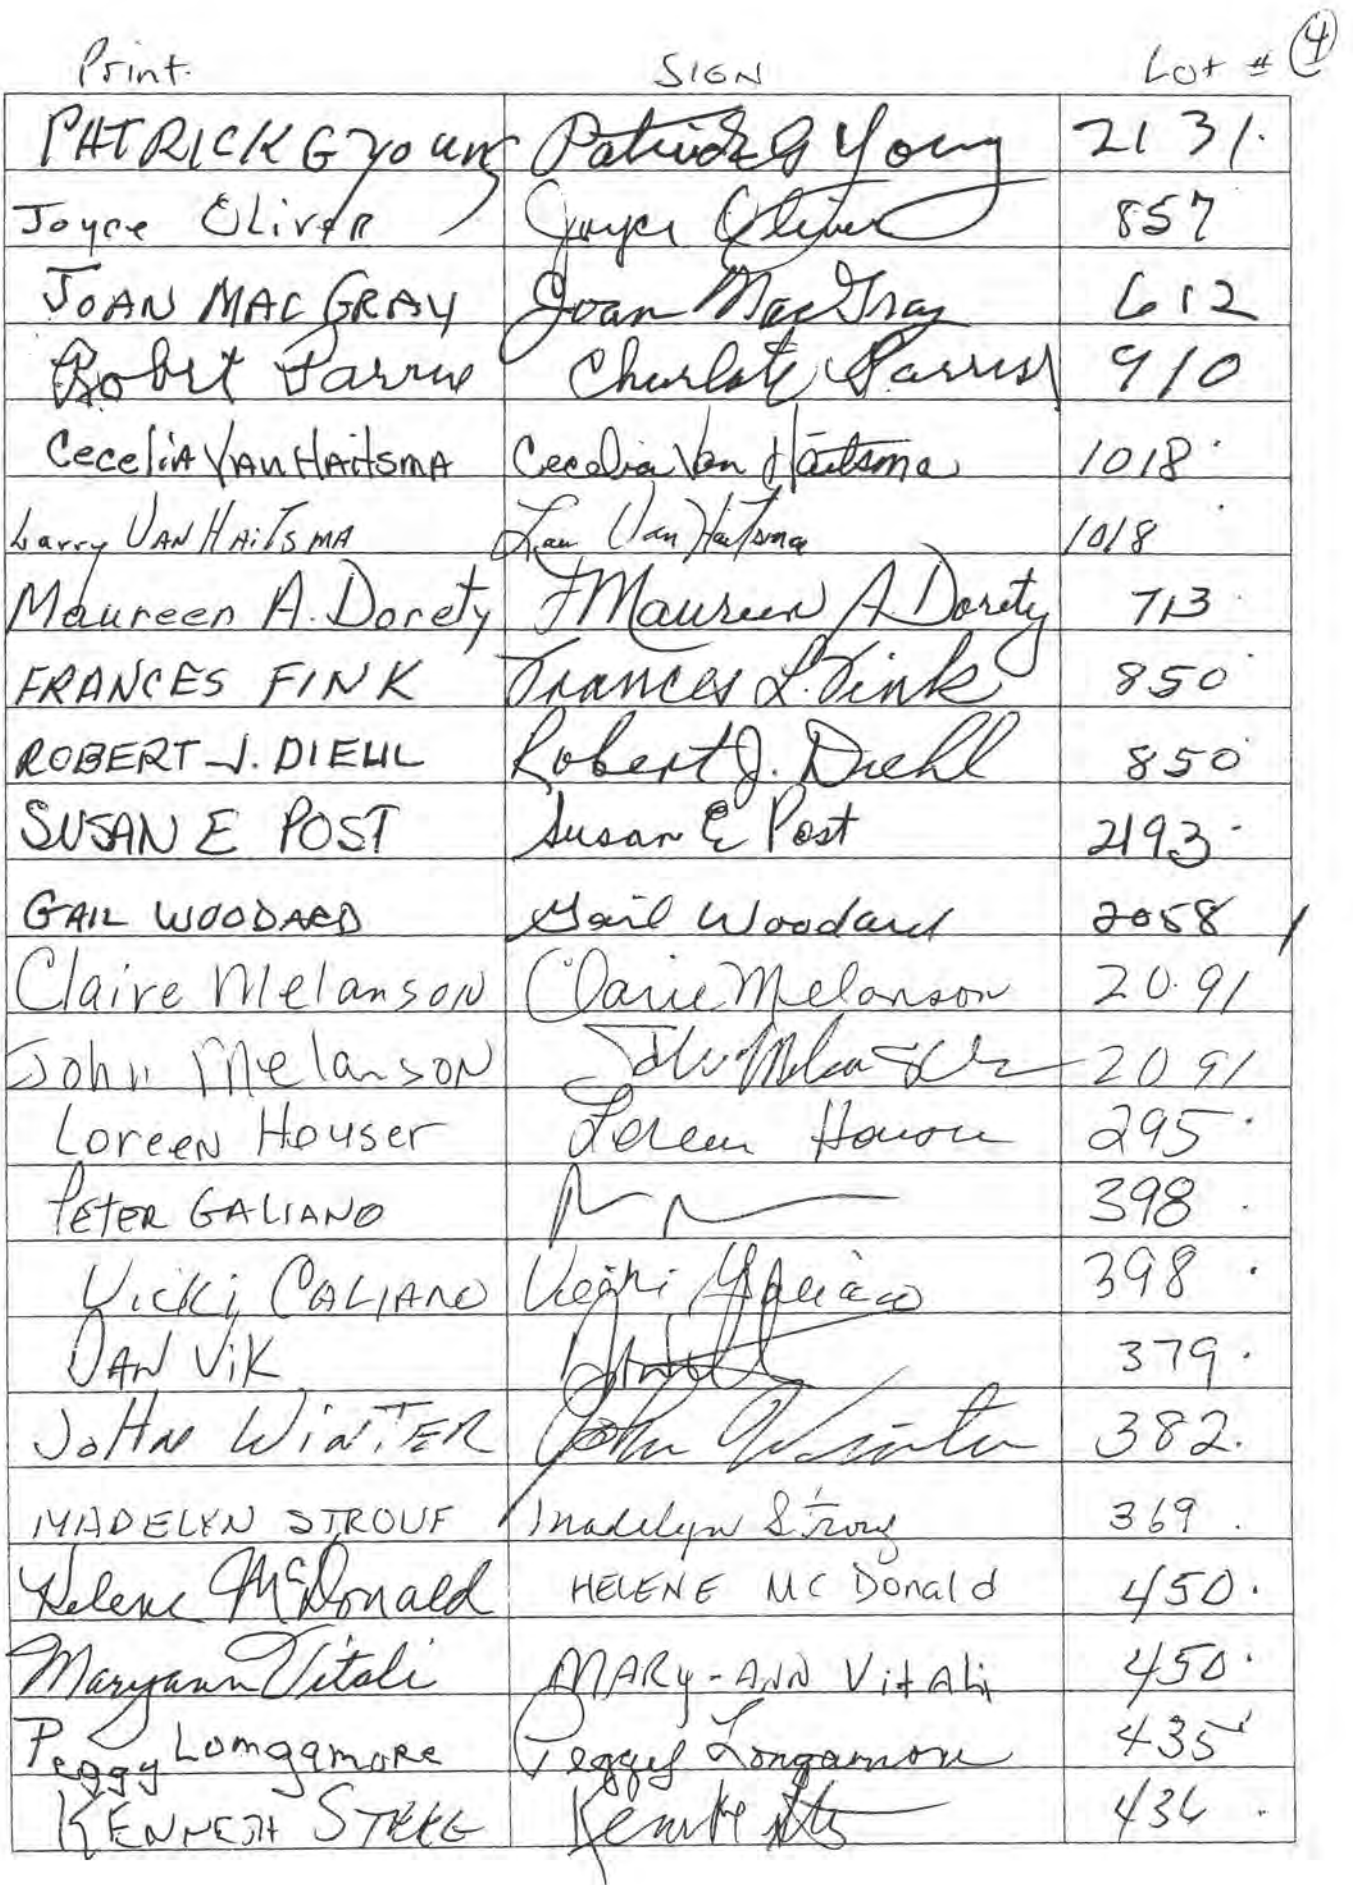 4
Print SIGN Lot #
PATRICK G YOUNG Patrick G Young 2131.
Joyce OLiver Joyce Oliver 857
JOAN MAC GRAY Joan MacGray 612
Robert Parris Charlote Parris 910
Cecelia VanHaitsma Cecelia Van Haitsma 1018
Larry VAN HAiTSMA Van Haitsma 1018
Maureen A. Dorety Maureen A Dorety 713
FRANCES FINK Frances L. Fink 850
ROBERT J. DIEHL Robert J. Diehl 850
SUSAN E POST Susan E Post 2193
GAIL WOODARD Gail Woodard 2058
Claire Melanson Claire Melanson 20.91
John Melanson 2091
Loreen Houser Loreen Houser 295
PETER GALIANO 398
Vicki GALIANO Vicki Galiano 398
DAN ViK 379.
JOHN WiNTER John Winter 382.
MADELYN STROUF Madelyn 369.
Helene McDonald HELENE MC Donald 450.
Maryann Vitali MARY-ANN VitALi 450.
Peggy Lomgamore Peggy Longamore 435
KENNETH 436